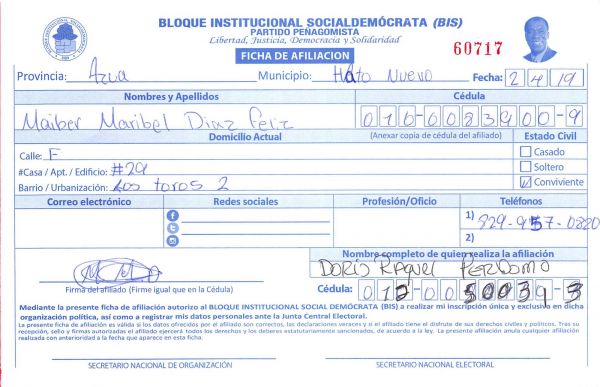 BLOQUE INSTITUCIONAL SOCIALDEMÓCRATA (BIS)
PARTIDO PEÑAGOMISTA
Libertad, Justicia, Democracia y Solidaridad
60717
FICHA DE AFILIACION
Provincia: Azua Municipio: Hato Nuevo Fecha: 2 4 19
Nombres y Apellidos Cédula
Maiber Maribel Diaz Feliz 010-0083900-9
Domicilio Actual (Anexar copia de cédula del afiliado) Estado Civil
Calle: F Casado
#Casa / Apt. / Edificio: #29 Soltero
Barrio / Urbanización: Los toros 2 Conviviente
Correo electrónico Redes sociales Profesión/Oficio Teléfonos
1) 829-957-0820
2)
Nombre completo de quien realiza la afiliación
DORIS RAQUEL PERDOMO
Firma del afiliado (Firme igual que en la Cédula) Cédula: 012-0050039-3
Mediante la presente ficha de afiliación autorizo al BLOQUE INSTITUCIONAL SOCIAL DEMÓCRATA (BIS) a realizar mi inscripción única y exclusiva en dicha
organización política, así como a registrar mis datos personales ante la Junta Central Electoral.
La presente ficha de afiliación es válida si los datos ofrecidos por el afiliado son correctos, las declaraciones veraces y si el afiliado tiene el disfrute de sus derechos civiles y politicos. Tras su
recepción, sello y firmas autorizadas el afiliado ejercerá todos los derechos y los deberes estatutariamente sancionados, de acuerdo a la ley. La presente afiliación anula cualquier afiliación
realizada con anterioridad a la fecha que aparece en esta ficha.
SECRETARIO NACIONAL DE ORGANIZACIÓN SECRETARIO NACIONAL ELECTORAL